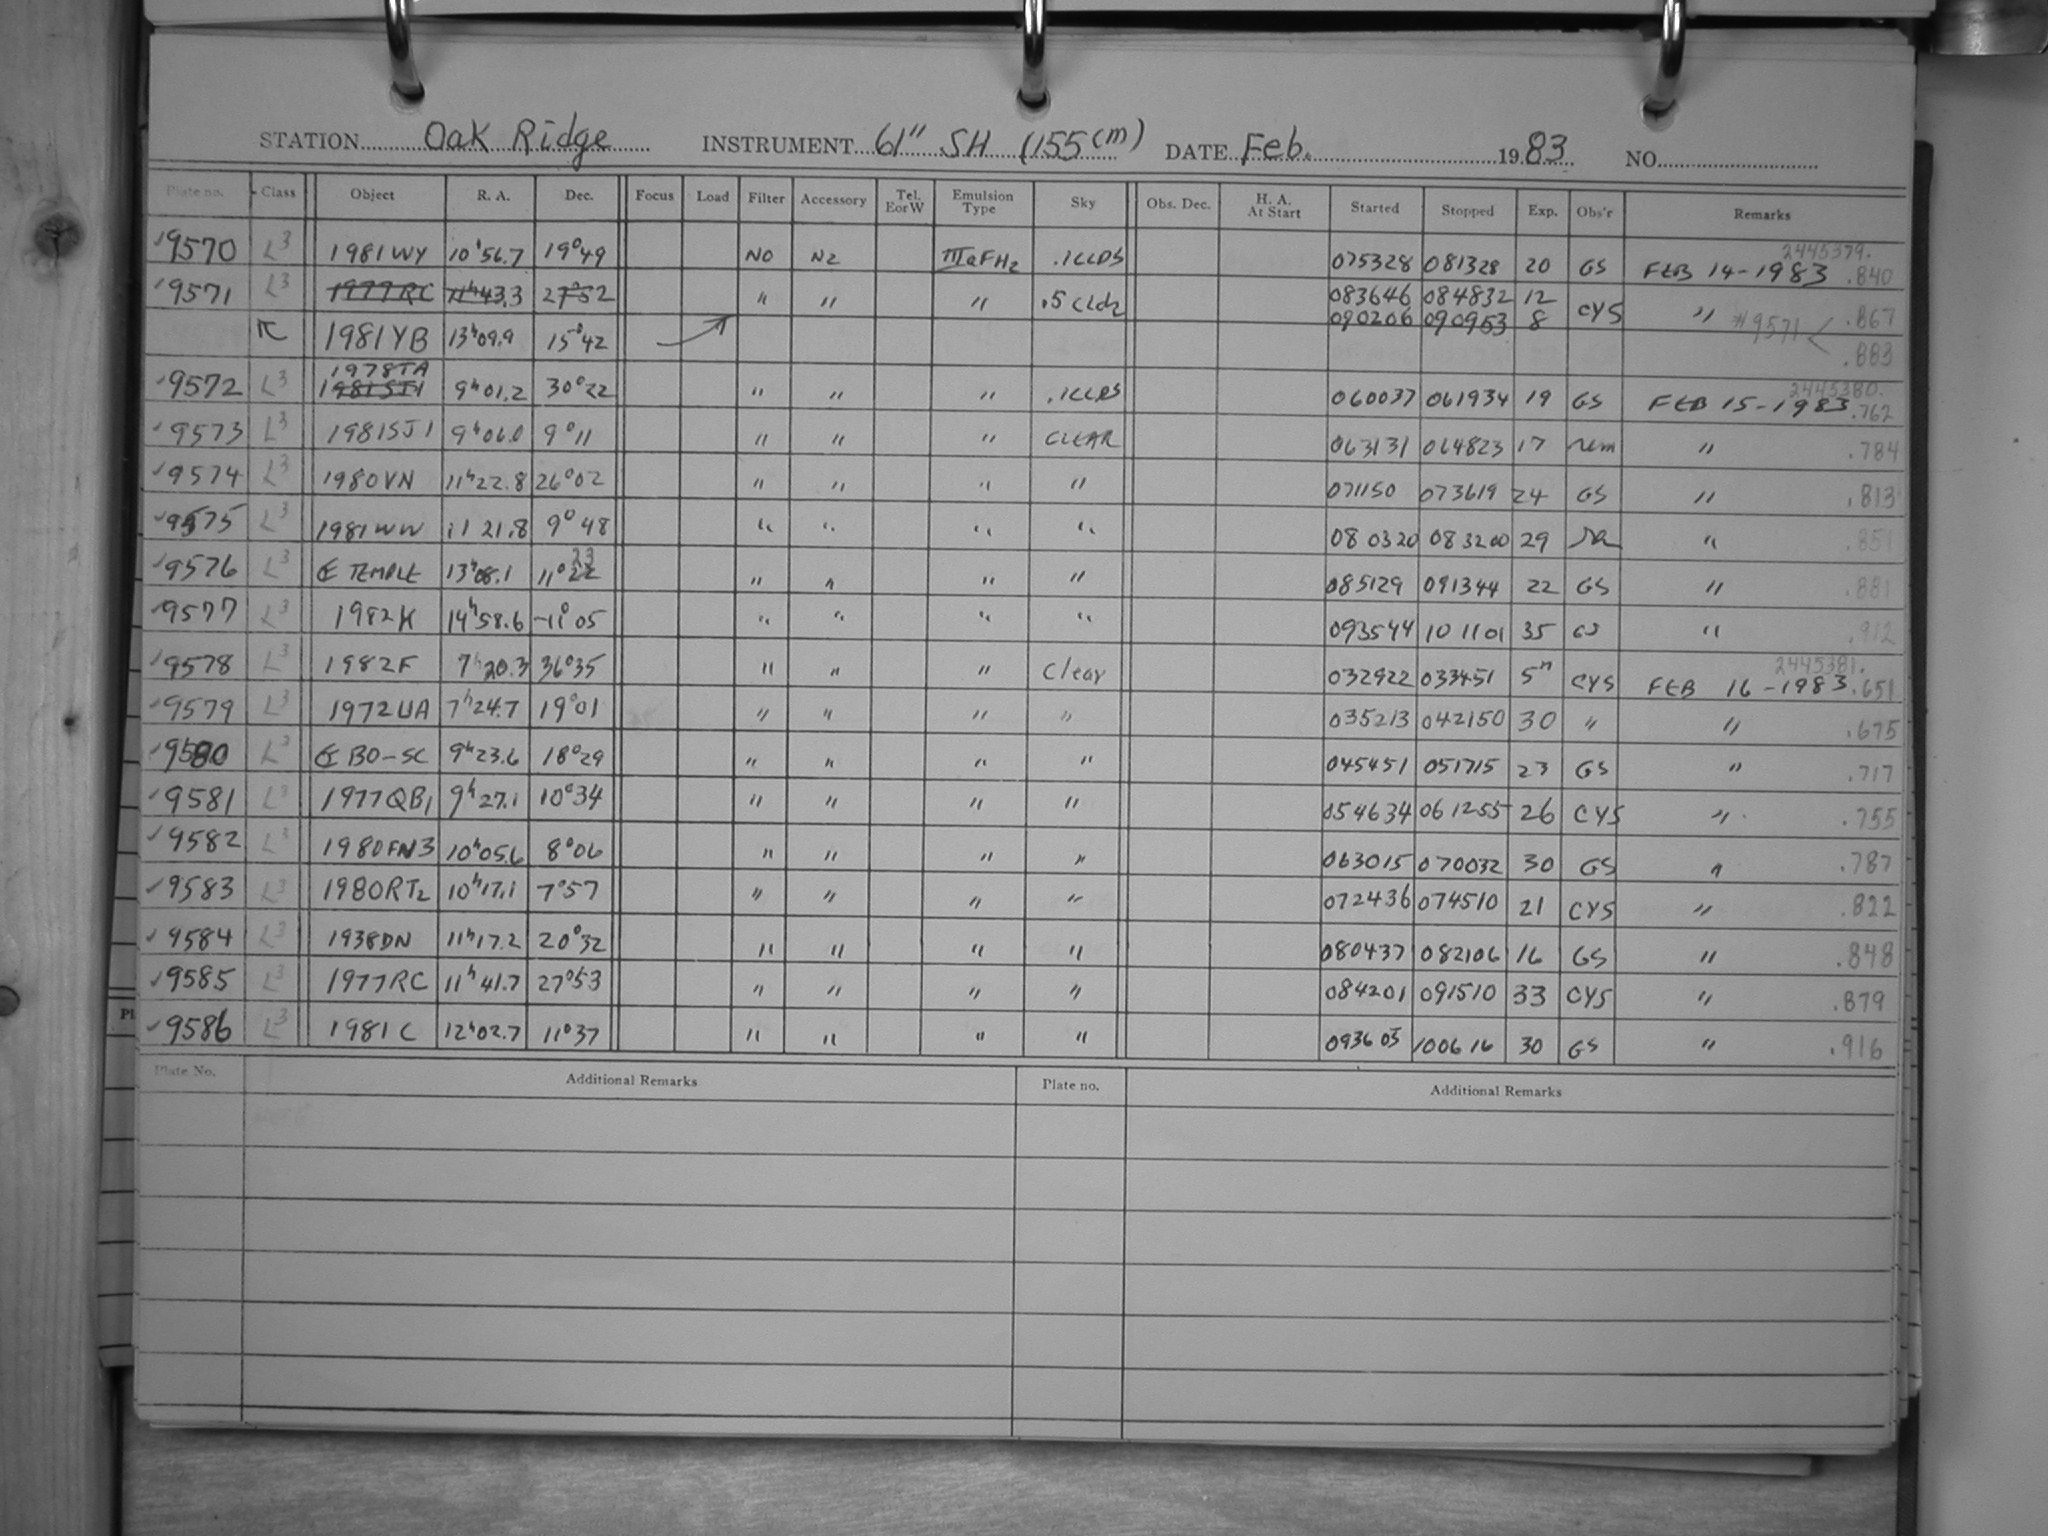 STATION Oak Ridge INSTRUMENT 61" SH (155cm) DATE Feb. 1983 NO.
Plate no. Class Object R. A. Dec. Focus Load Filter Accessory Tel. E or W Emulsion Type Sky Obs. Dec. H. A. At Start Started Stopped Exp. Obs'r Remarks
9570 L3 1981WY 10h56.7 19°49 NO N2 IIIaFH2 .1CLDS 075328 081328 20 GS FEB 14-1983 2445379. .840
9571 L3 1977RC 11h43.3 27°52 " " " .5 Clds 083646 084832 12 CYS " .867
1981YB 13h09.9 15°42 090206 090953 8 #9571 .883
1978TA
9572 L3 1981ST1 9h01.2 30°22 " " " .1CLDS 060037 061934 19 GS FEB 15-1983 2445380. .762
9573 L3 1981SJ1 9h06.0 9°11 " " " CLEAR 063131 064823 17 " .784
9574 L3 1980VN 11h22.8 26°02 " " " " 071150 073619 24 GS " .813
9575 L3 1981WW 11 21.8 9°48 " " " " 080320 083200 29 " .851
9576 L3 TEMPLE 13h08.1 11°22 23 " " " " 085129 091344 22 GS " .881
9577 L3 1982K 14h58.6 -11°05 " " " " 093544 101101 35 GS " .912
9578 L3 1982F 7h20.3 36°35 " " " Clear 032922 033451 5m CYS FEB 16-1983 2445381. .651
9579 L3 1972UA 7h24.7 19°01 " " " " 035213 042150 30 " " .675
9580 L3 BO-SC 9h23.6 18°29 " " " " 045451 051715 23 GS " .717
9581 L3 1977QB1 9h27.1 10°34 " " " " 054634 061255 26 CYS " .755
9582 L3 1980FN3 10h05.6 8°06 " " " " 063015 070032 30 GS " .787
9583 L3 1980RT2 10h17.1 7°57 " " " " 072436 074510 21 CYS " .822
9584 L3 1938DN 11h17.2 20°32 " " " " 080437 082106 16 GS " .848
9585 L3 1977RC 11h41.7 27°53 " " " " 084201 091510 33 CYS " .879
9586 L3 1981C 12h02.7 11°37 " " " " 093605 100616 30 GS " .916
Plate No. Additional Remarks Plate no. Additional Remarks